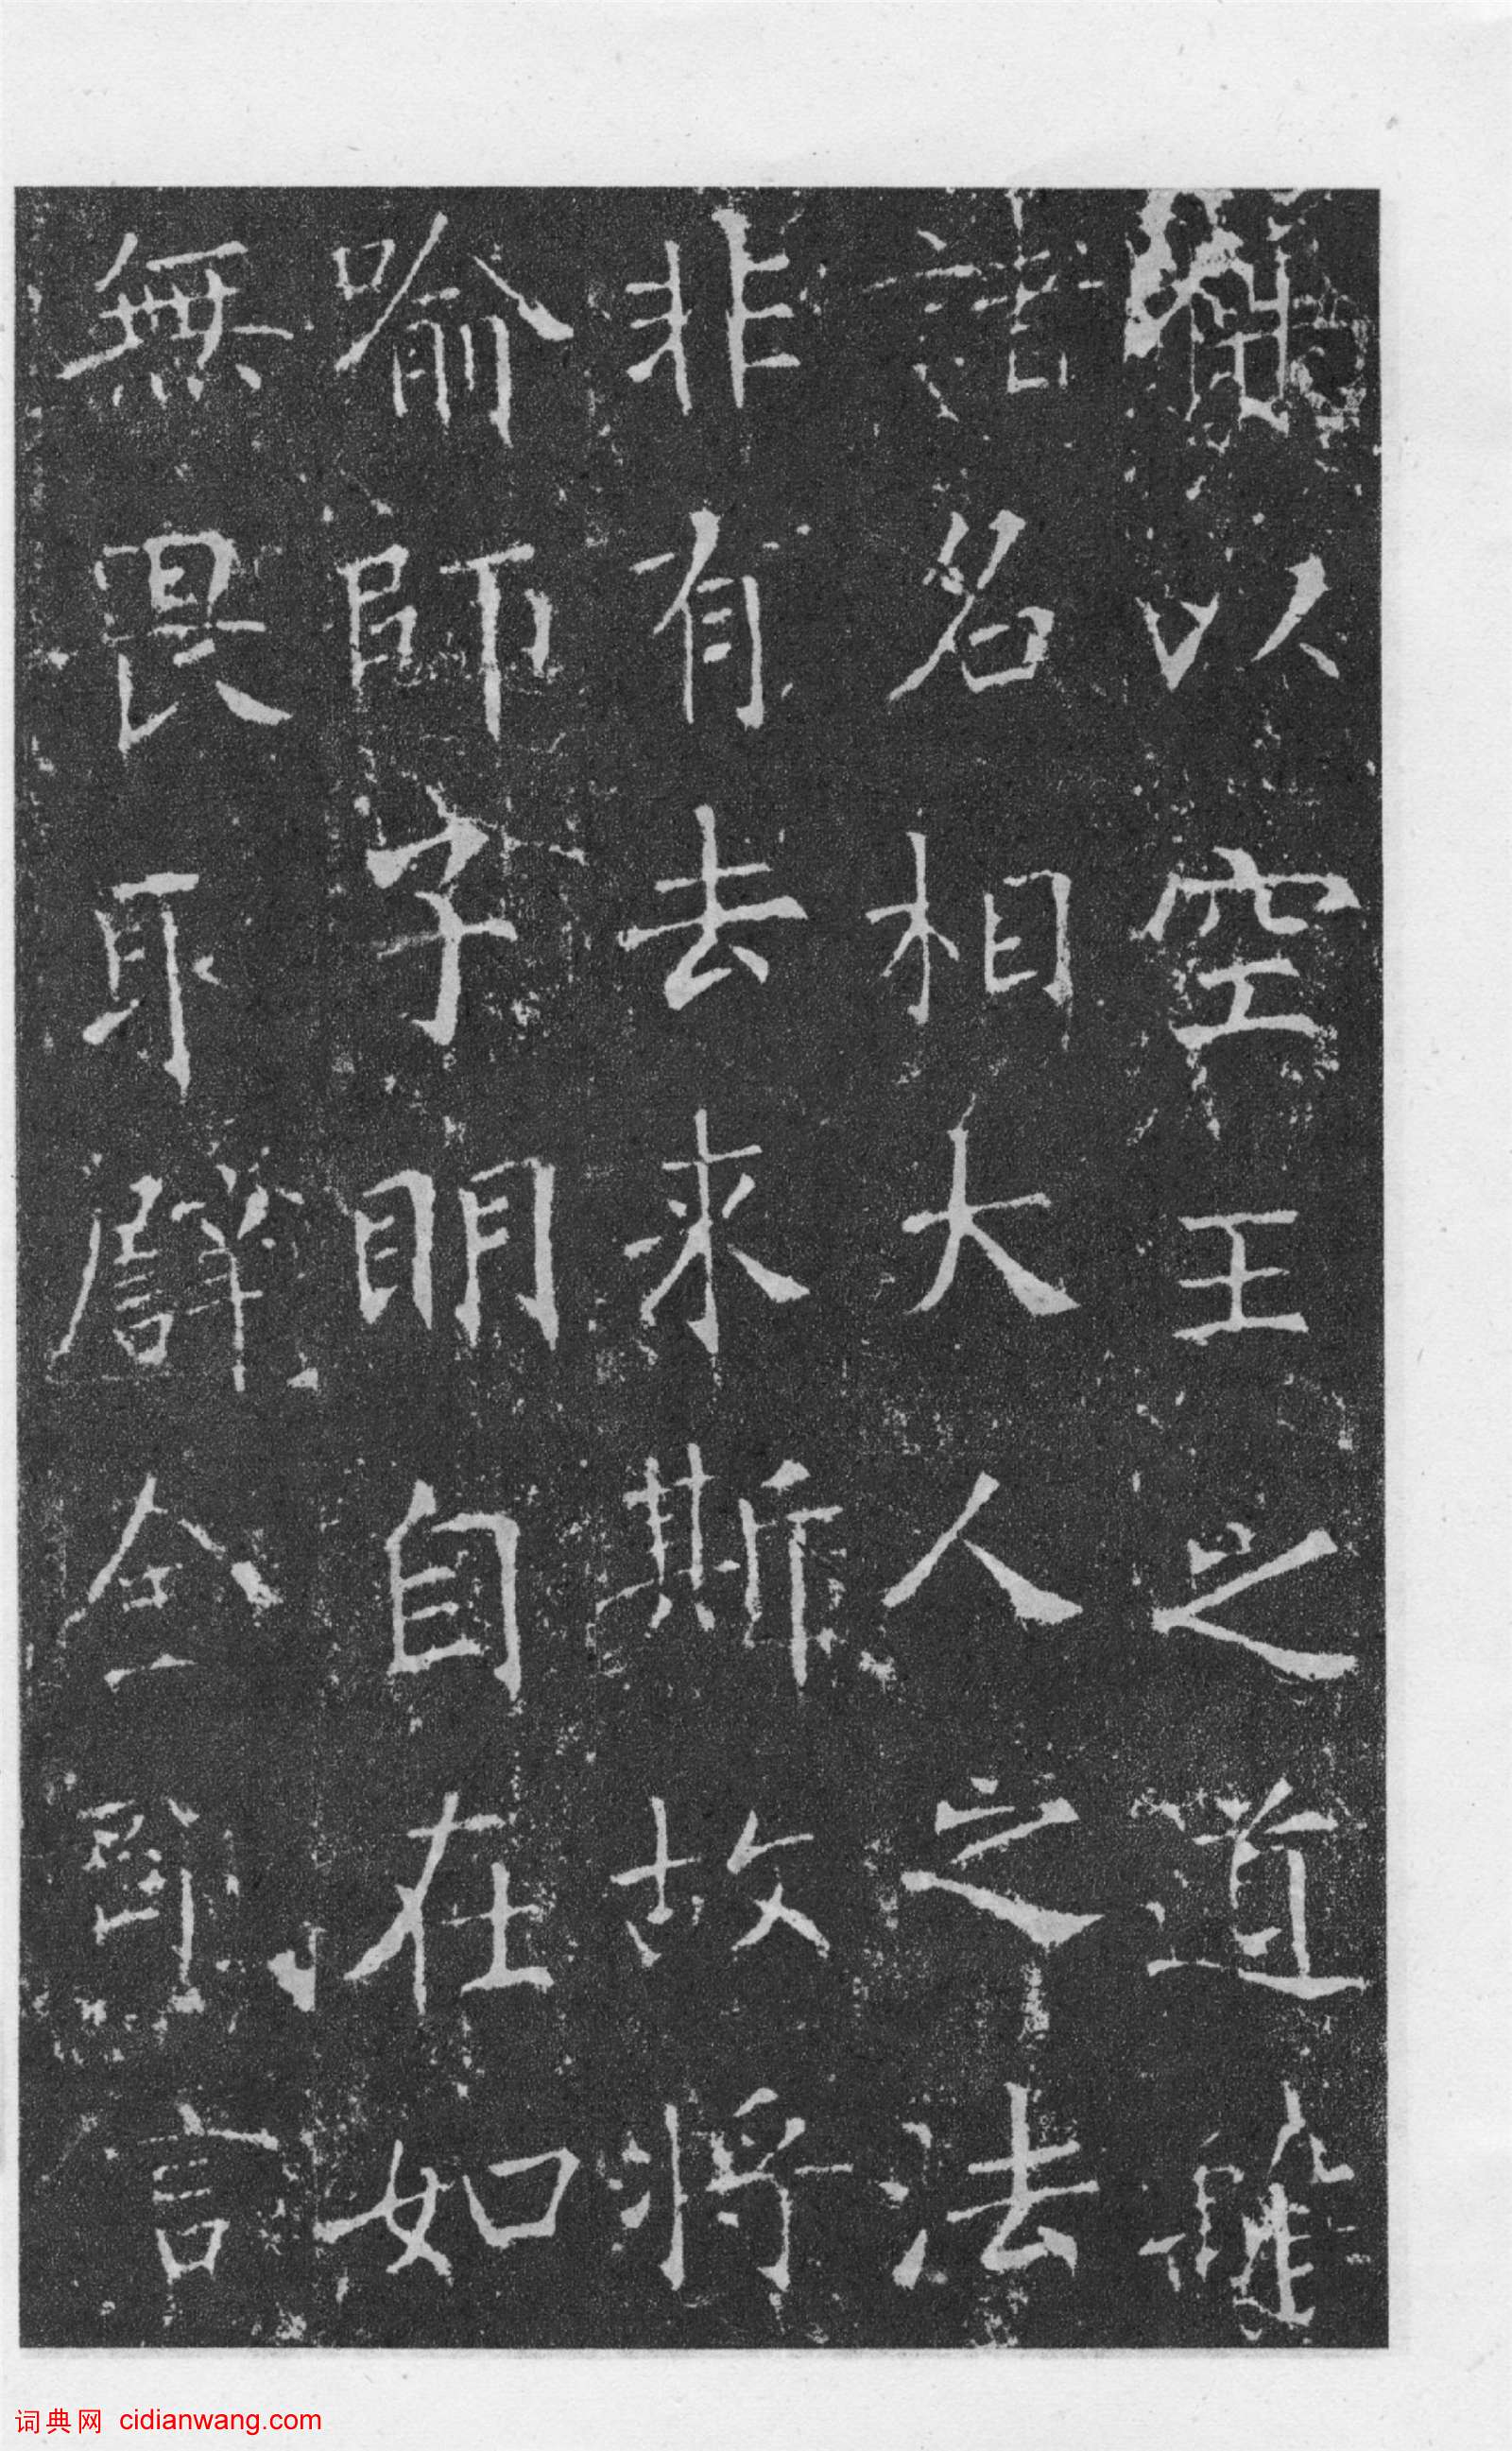 竊以空王之道離
諸名相大人之法
非有去来斯故將
喻師子明自在如
無畏取譬金剛言
词典网 cidianwang.com